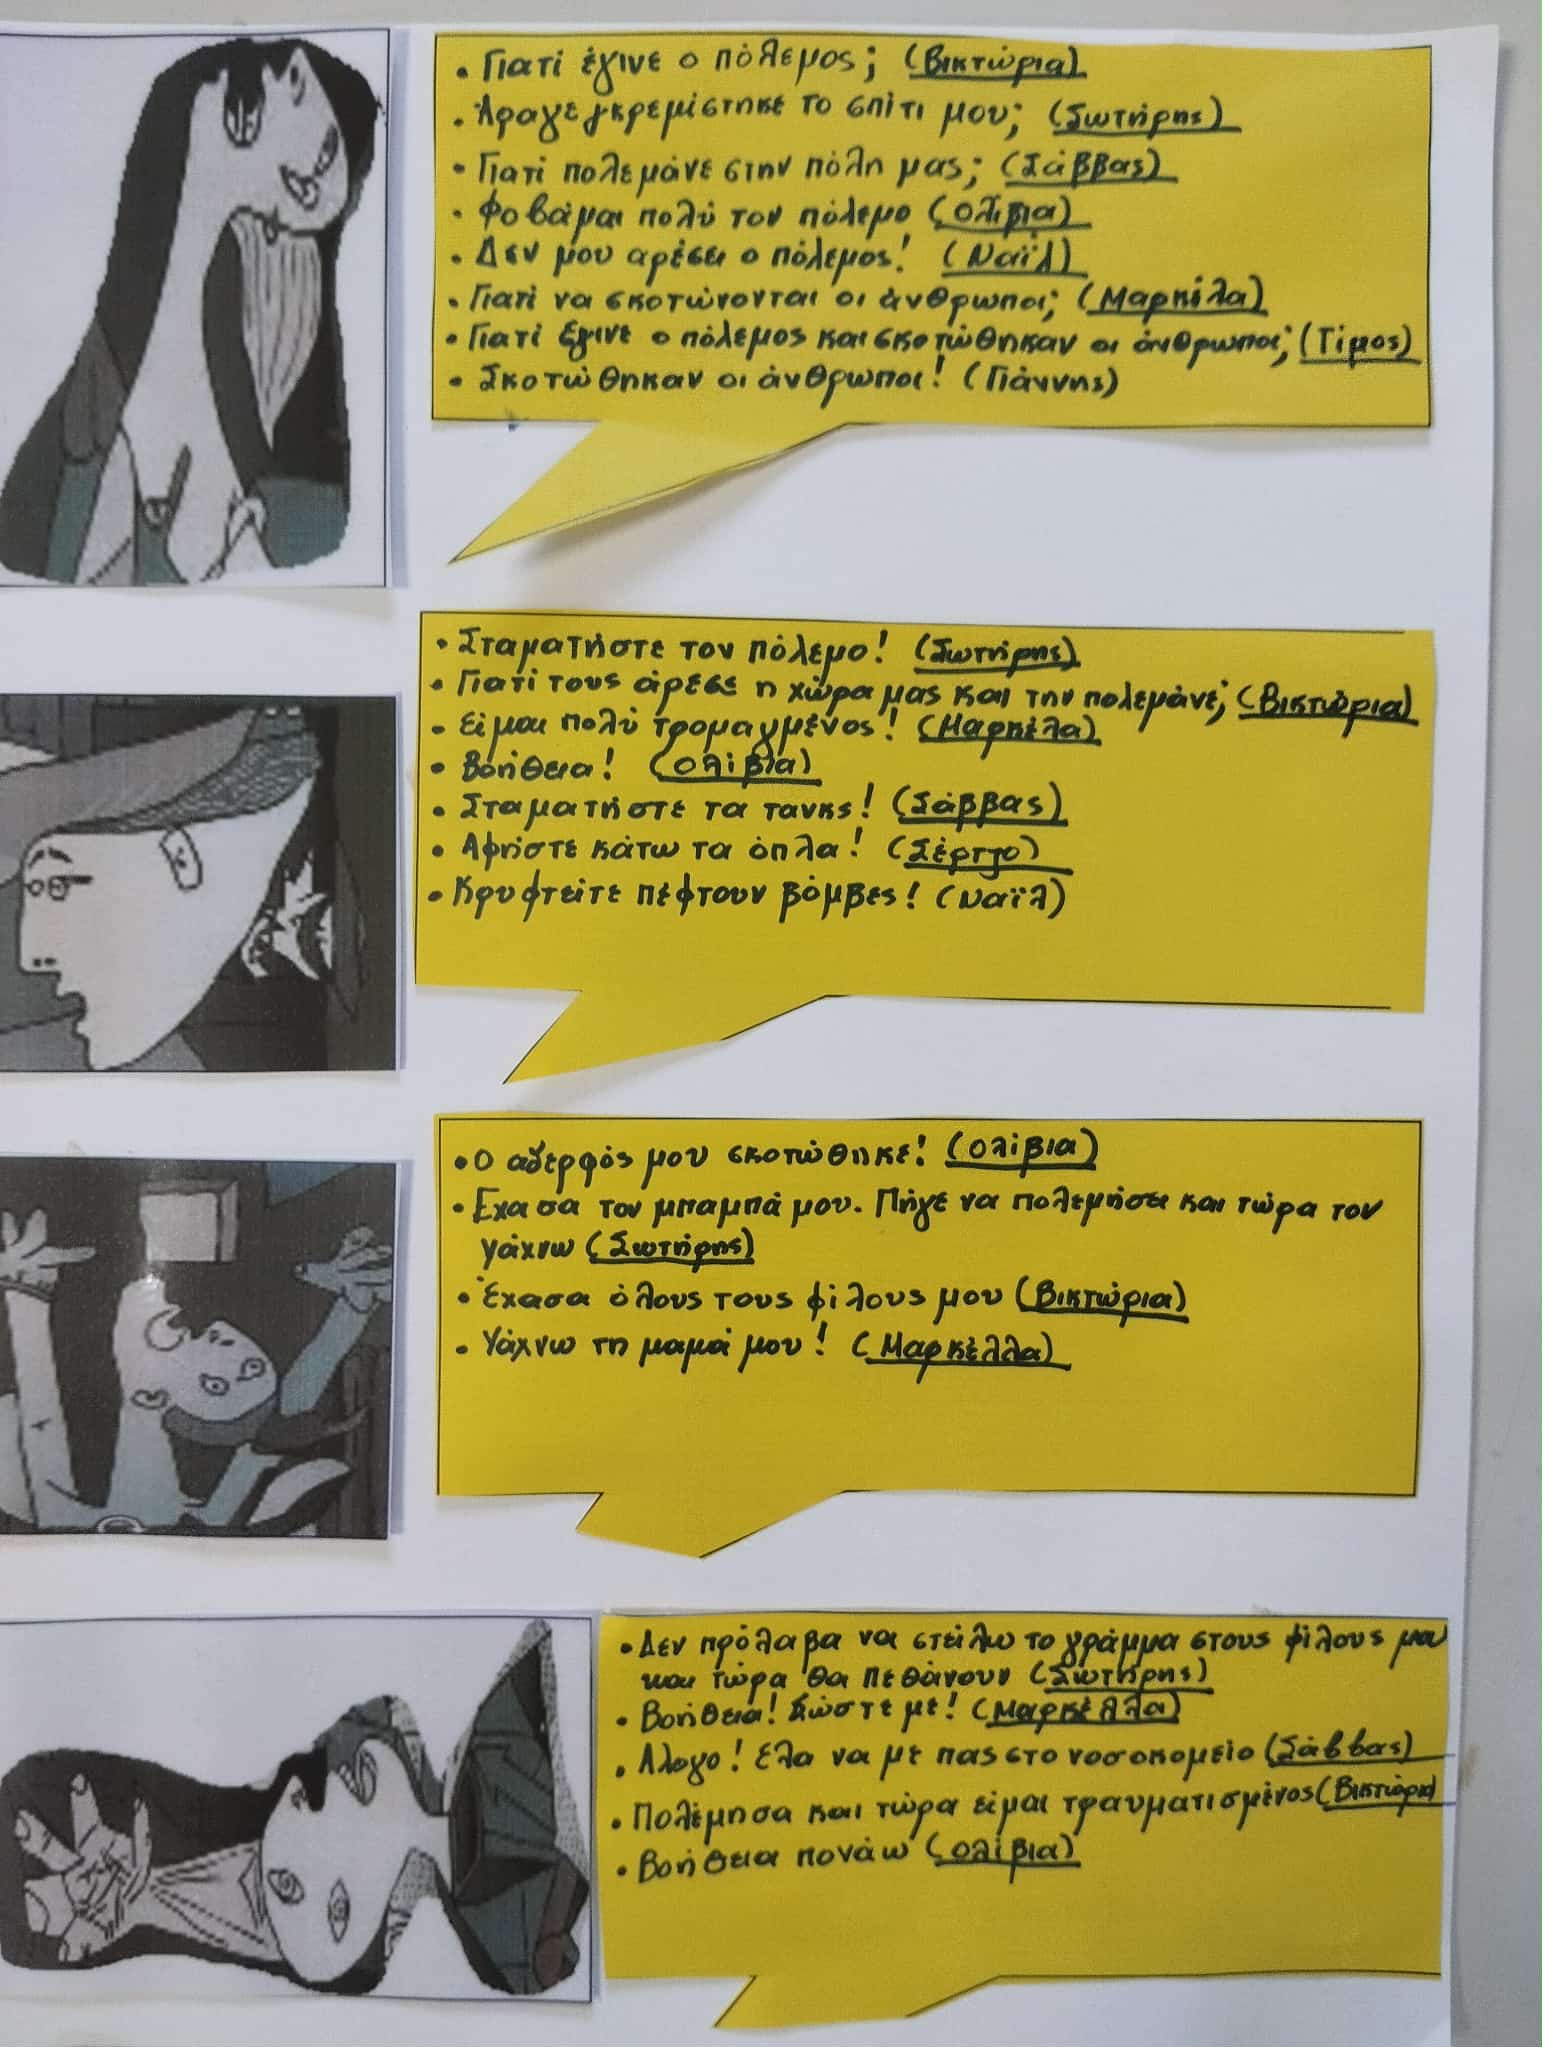 • Γιατί έγινε ο πόλεμος; (Βικτώρια)
• Άραγε γκρεμίστηκε το σπίτι μου; (Σωτήρης)
• Γιατί πολεμάνε στην πόλη μας; (Σάββας)
• Φοβάμαι πολύ τον πόλεμο (Ολίβια)
• Δεν μου αρέσει ο πόλεμος! (Ναϊλ)
• Γιατί να σκοτώνονται οι άνθρωποι; (Μαρκέλα)
• Γιατί έγινε ο πόλεμος και σκοτώθηκαν οι άνθρωποι; (Τίμος)
• Σκοτώθηκαν οι άνθρωποι! (Γιάννης)
• Σταματήστε τον πόλεμο! (Σωτήρης)
• Γιατί τους άρεσε η χώρα μας και την πολεμάνε; (Βικτώρια)
• Είμαι πολύ τρομαγμένος! (Μαρκέλα)
• Βοήθεια! (Ολίβια)
• Σταματήστε τα τανκς! (Σάββας)
• Αφήστε κάτω τα όπλα! (Σέργιο)
• Κρυφτείτε πέφτουν βόμβες! (Ναϊλ)
• Ο αδερφός μου σκοτώθηκε! (Ολίβια)
• Έχασα τον μπαμπά μου. Πήγε να πολεμήσει και τώρα τον
ψάχνω (Σωτήρης)
• Έχασα όλους τους φίλους μου (Βικτώρια)
• Ψάχνω τη μαμά μου! (Μαρκέλλα)
• Δεν πρόλαβα να στείλω το γράμμα στους φίλους μου
και τώρα θα πεθάνουν (Σωτήρης)
• Βοήθεια! Σώστε με! (Μαρκέλλα)
• Άλογο! Έλα να με πας στο νοσοκομείο (Σάββας)
• Πολέμησα και τώρα είμαι τραυματισμένος (Βικτώρια)
• Βοήθεια πονάω (Ολίβια)